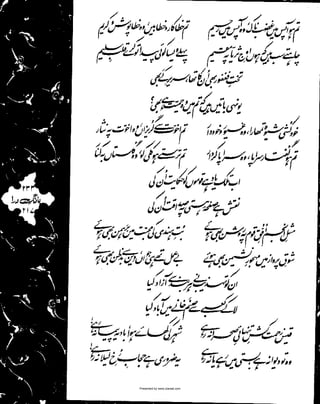 تم ہو آپس میں غضب ناک، وہ آپس میں رحیم
تم خطاکار و خطابیں، وہ خطاپوش و کریم
چاہتے سب ہیں کہ ہوں اوجِ ثریا پہ مقیم
پہلے ویسا کوئی پیدا تو کرے قلبِ سلیم
تختِ فغفور بھی ان کا تھا، سریرِ کَے بھی
یونہی باتیں ہیں کہ تم میں وہ حمیت ہے بھی؟
خودکشی شیوہ تمھارا، وہ غیور و خوددار
تم اخوت سے گریزاں، وہ اخوت پہ نثار
تم ہو گفتار سراپا، وہ سراپا کردار
تم ترستے ہو کلی کو، وہ گلستاں بہ کنار
اب تلک یاد ہے قوموں کو حکایت ان کی
نقش ہے صفحۂ ہستی پہ صداقت ان کی
مثلِ انجم افقِ قوم پہ روشن بھی ہوئے
بتِ ہندی کی محبت میں برہمن بھی ہوئے
شوقِ پرواز میں مہجورِ نشیمن بھی ہوئے
بے عمل تھے ہی جواں، دین سے بدظن بھی ہوئے
ان کو تہذیب نے ہر بند سے آزاد کیا
لا کے کعبے سے صنم خانے میں آباد کیا
قیس زحمت کشِ تنہائیِ صحرا نہ رہے
شہر کی کھائے ہوا، بادیہ پیما نہ رہے
وہ تو دیوانہ ہے، بستی میں رہے یا نہ رہے
یہ ضروری ہے حجابِ رخِ لیلا نہ رہے
بانگِ درا
۲۱۷